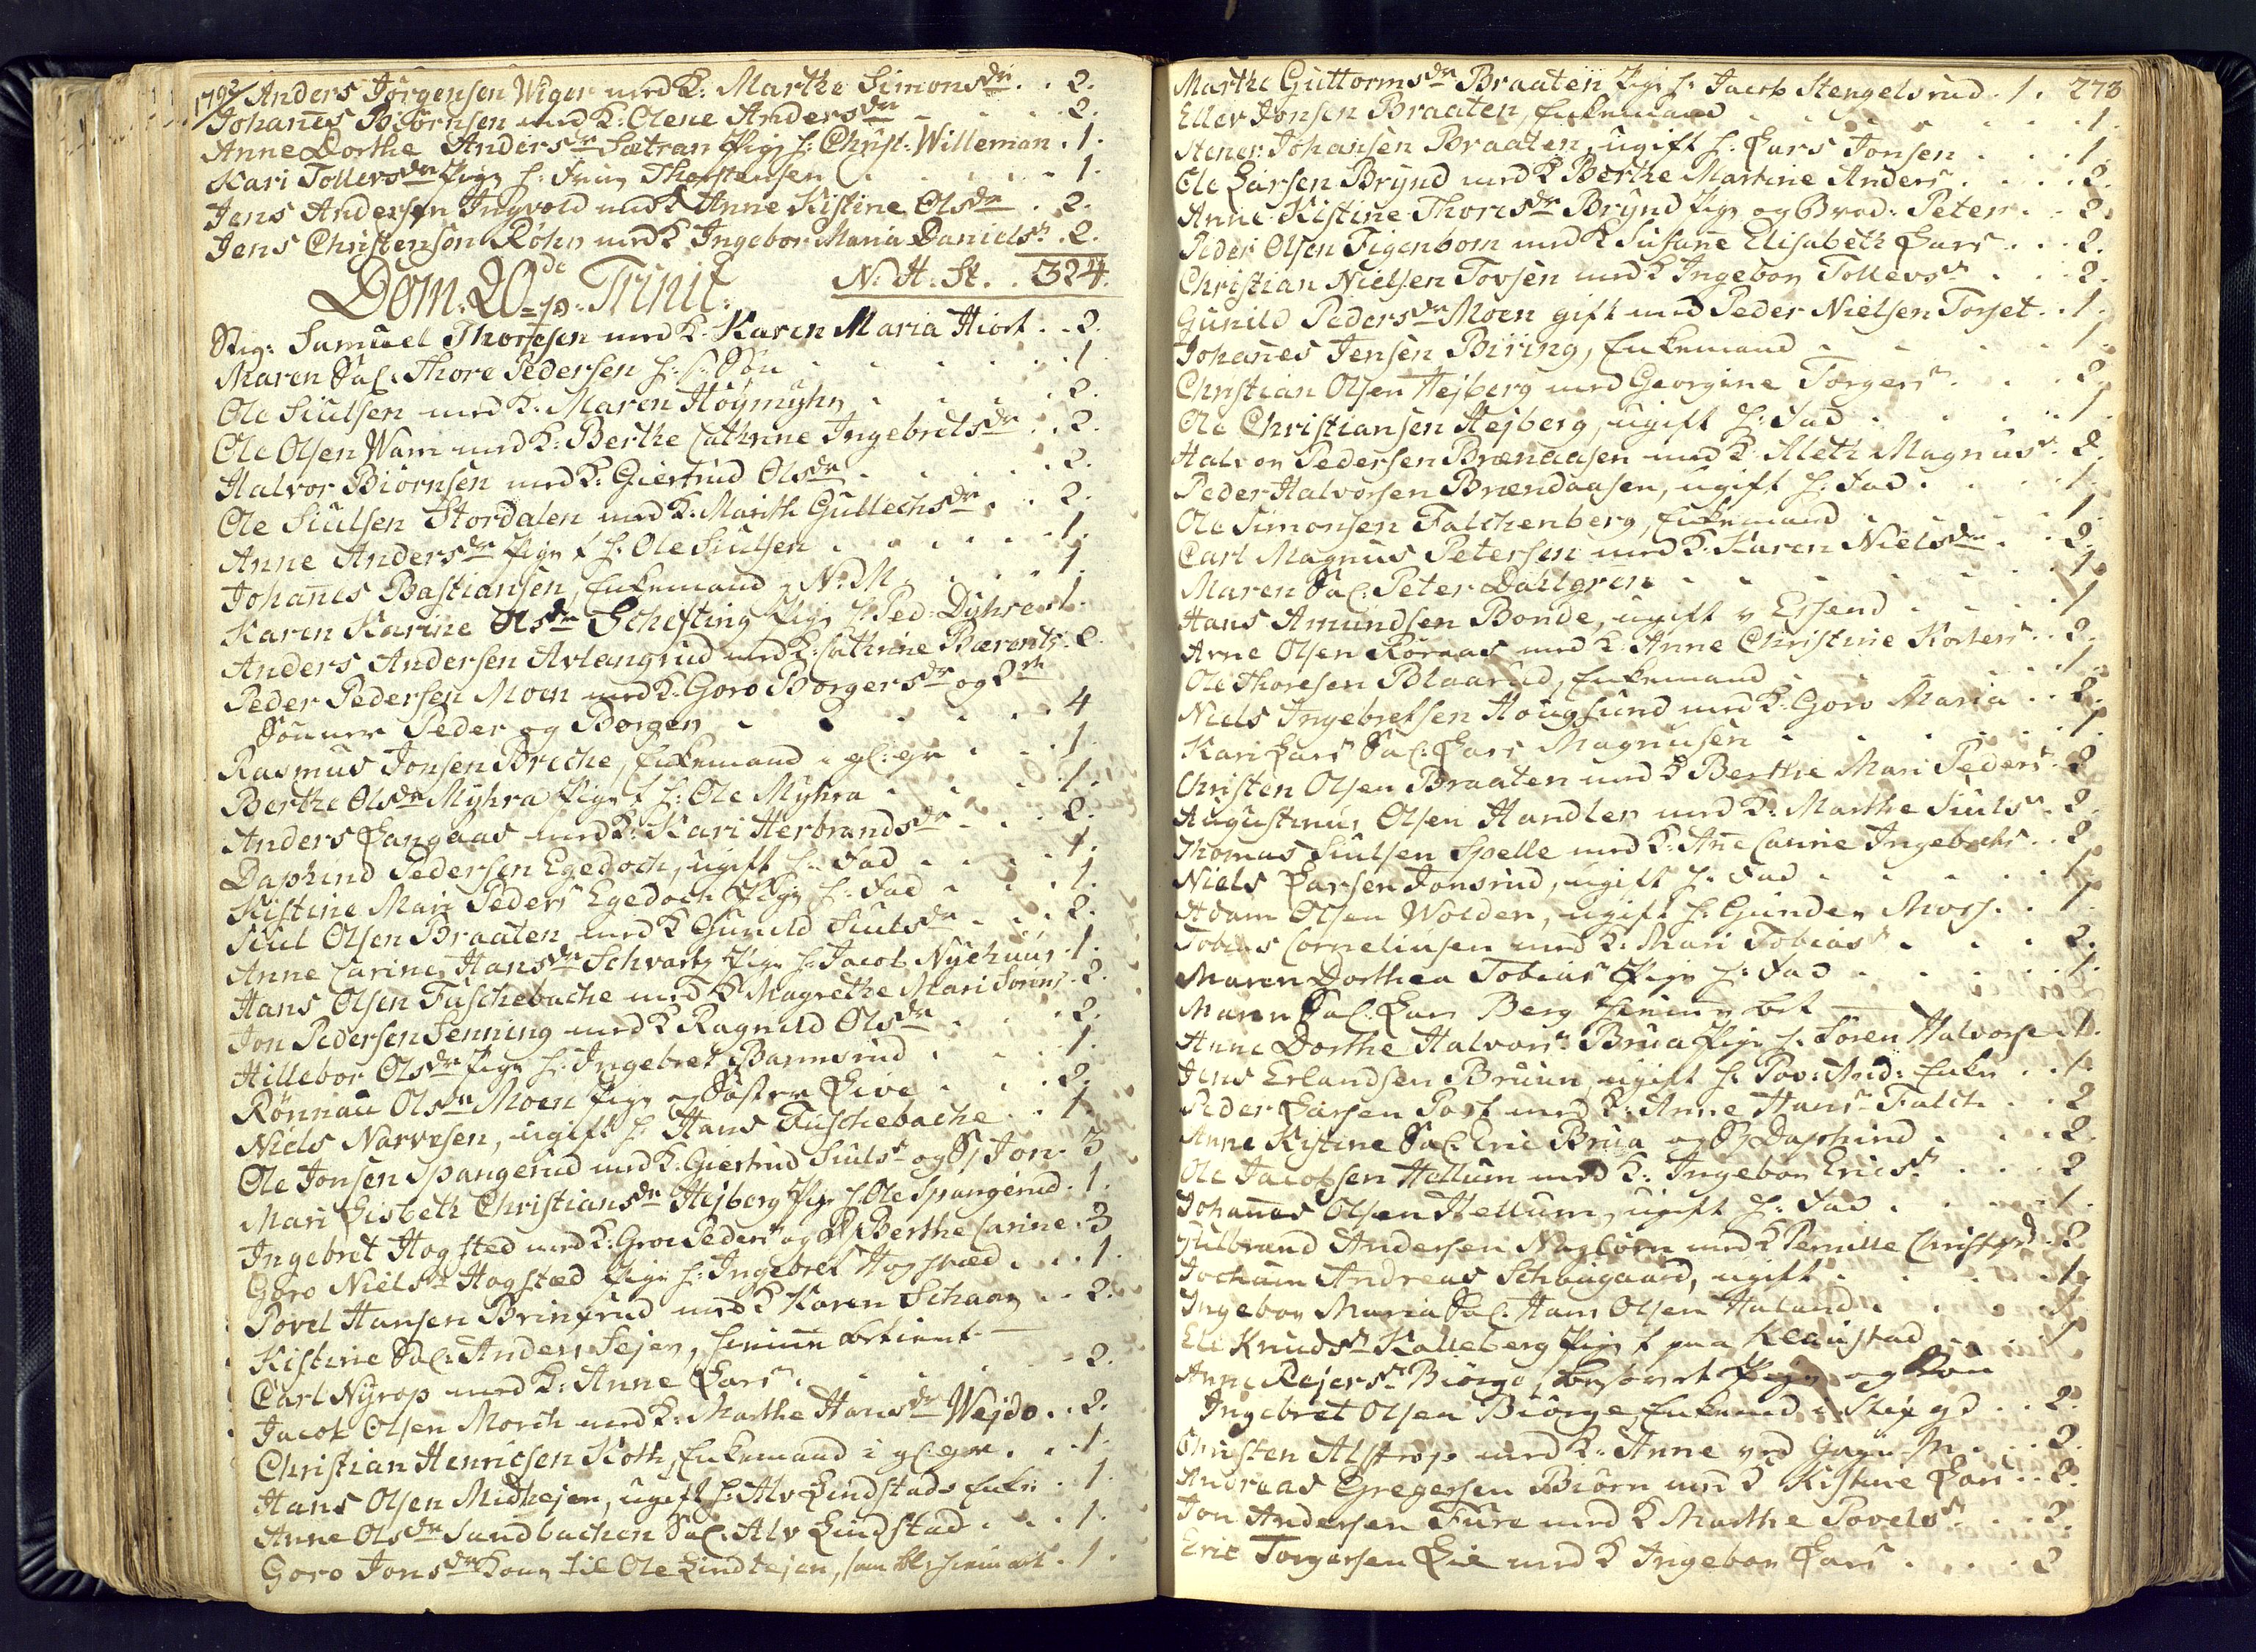 1792/ Anders Jörgensen Wiger med K: Marthe Simonsdr . . 2.
Johan̄es Biörnsen med K: Olene Andersdr . . 2.
Anne Dorthe Andersdr Sætran Pige h: Christ: Willeman . 1.
Kari Tollevsdr Pige h: Thorstensen . . 1.
Jens Andersen Ingvold med K Anne Kistine Olsdr . 2.
Jens Christensen Röhn med K Ingebor Maria Danielsdr . 2.
Dom: 20de p. Trinit: N: H: St. . 324.
Sig: Samuel Thoresen med K: Karen Maria Hiort . . 2.
Maren Sal: Thore Pedersen h: s: Sön . . 1
Ole Siulsen med K: Maren Höymyhr . . 2.
Ole Olsen Wam med K: Berthe Cathrine Ingebretsdr . . 2.
Halvor Biörnsen med K: Giertrud Olsdr . . 2.
Ole Siulsen Stordalen med K: Marith Gullechsdr . . 2.
Anne Andersdr Pige f h: Ole Siulsen . . 1.
Johan̄es Bastiansen, Enkemand N: M. . . 1.
Karen Karine Olsdr Schefting Pige h Ped: Dyhre . 1.
Anders Andersen Arlangrud med K: Cathrine Bærents . 2
Peder Pedersen Moen med K: Goro Borgersdr og 2de
Sönner Peder og Borger . . 4
Rasmus Jonsen Breche, Enkemand i gl: gr . . 1.
Berthe Olsdr Myhra Pige f h: Ole Myhra . . 1.
Anders Langaas med K: Kari Herbrandsdr . . 2.
Daphind Pedersen Egedoch, ugift h: Fad . . 1.
Kistine Mari Pedersdr Egedoch Pige h: Fad . . 1.
Siul Olsen Braaten med K Gunild Siulsdr . . 2.
Anne Carine Hansdr Schvartz Pige h: Jacob Nyehuus . 1.
Hans Olsen Fuschebache med K Magrethe Mari Sörens . 2.
Jon Pedersen Jenning med K Ragnild Olsdr . . 2.
Hillebor Olsdr Pige h: Ingebret Bannesrud . . 1.
Rönnau Olsdr Moen Pige og Söster Live . . 2.
Niels Narvesen, ugift h: Hans Fuschebache . . 1.
Ole Jonsen Spangerud med K: Giertrud Siulsdr og S: Jon . 3
Mari Lisbeth Christiansdr Hejberg Pige h: Ole Spangerud . 1.
Ingebret Hogsted med K: Groe Pedersdr og D: Berthe Carine . 3
Goro Nielsdr Hogstæd Pige h: Ingebret Hogstæd . . 1.
Povel Hansen Brinsrud med K Karen Schaan . . 2.
Kistine Sal: Anders Sejer, hiemme betient —
Carl Nÿrop med K: Anne Larsdr . . 2.
Jacob Olsen Morch med K: Marthe Hansdr Wejdo . . 2.
Christian Henricsen Koth, Enkemand i gl: gr . . 1.
Hans Olsen Midhejen, ugift h: Alv Lindstads Enke . 1.
Anne Olsdr Sandbachen Sal: Alv Lindstad . . 1.
Goro Jonsdr Kone til Ole Lindtejen, hiem . 1.
Marthe Guttormsdr Braaten Pige h: Jacob Stengelsrud . 1. 273
Ellev Jonsen Braaten, Enkemand . . 1.
Stener Johansen Braaten, ugift h: Lars Jonsen . . 1.
Ole Larsen Brynd med K Berthe Martine Anders . . 2.
Anne Kistine Thoresdr Brynd Pige og Brod: Peter . . 2.
Peder Olsen Figenbom med K Susan̄e Elisabeth Lars . . 2.
Christian Nielsen Torsen med K Ingebor Tollevsdr . . 2.
Gunild Pedersdr Moen gift med Peder Nielsen Torset . . 1.
Johan̄es Jensen Büring, Enkemand . . 1.
Christian Olsen Hejberg med Georgine Torgers . . 2.
Ole Christiansen Hejberg, ugift h: Fad . . 1.
Halvor Pedersen Brændaasen med K: Aleth Magnusdr . 2.
Peder Halvorsen Brændaasen, ugift h: Fad . . 1.
Ole Simonsen Falchenberg, Enkemand . . 1.
Carl Magnus Petersen med K: Karen Nielsdr . . 2.
Maren Sal: Peter Dahlgren . . 1.
Hans Amundsen Bonde, ugift v Essend . . 1
Arne Olsen Röraas med K Anne Christine Kosters . . 2.
Ole Thoresen Blaarud, Enkemand . . 1.
Niels Ingebretsen Hougsund med K: Goro Maria . . 2.
Kari Larsdr Sal: Lars Magnusen . . 1.
Christen Olsen Braaten med K Berthe Mari Peders . 2
Augustinus Olsen Handler med K: Marthe Siulsdr . 2.
Thomas Siulsen Spelle med K: An̄e Carine Ingebrets . . 2
Niels Larsen Jonsrud, ugift h: Fad . . 1.
Adam Olsen Wolden, ugift h: Gunder Moss . . 1.
Tobias Corneliusen med K: Mari Tobiasdr . . 2.
Maren Dorthea Tobiasdr Pige h: Fad . . 1.
Maren Sal: Lars Berg hiemme bet —
Anne Dorthe Halvorsdr Brua Pige h: Sören Halvorse . 1.
Jens Erlandsen Bruun, ugift h: Pov: And: Enke . . 1.
Peder Larsen Post med K: Anne Hansdr Falch . . 2
Anne Kistine Sal: Eric Brua og S: Daphind . . 2.
Ole Jacobsen Hellum med K: Ingebor Ericsdr . . 2
Johan̄es Olsen Hellum, ugift h: Fad . . 1.
Gulbrand Andersen Nagbörn med K Pernille Christ . 2
Jochum Andreas Schougaard, ugift . . 1.
Ingebor Maria Sal: Hans Olsen Haland . . 1.
Eli Knudsdr Kalleberg Pige f paa Klaustad . . 1
Anne Rejersdr Biörge besovet Pige og Kone
Ingebret Olsen Biörge, Enkemd i . . 2.
Christen Alstrop med K: Anne . . 2.
Andreas Gregersen Biörn med K Kistine Lars . . 2.
Jon Andersen Fure med K Marthe Povelsdr . . 2.
Eric Torgersen Lie med K Ingebor Lars . . 2